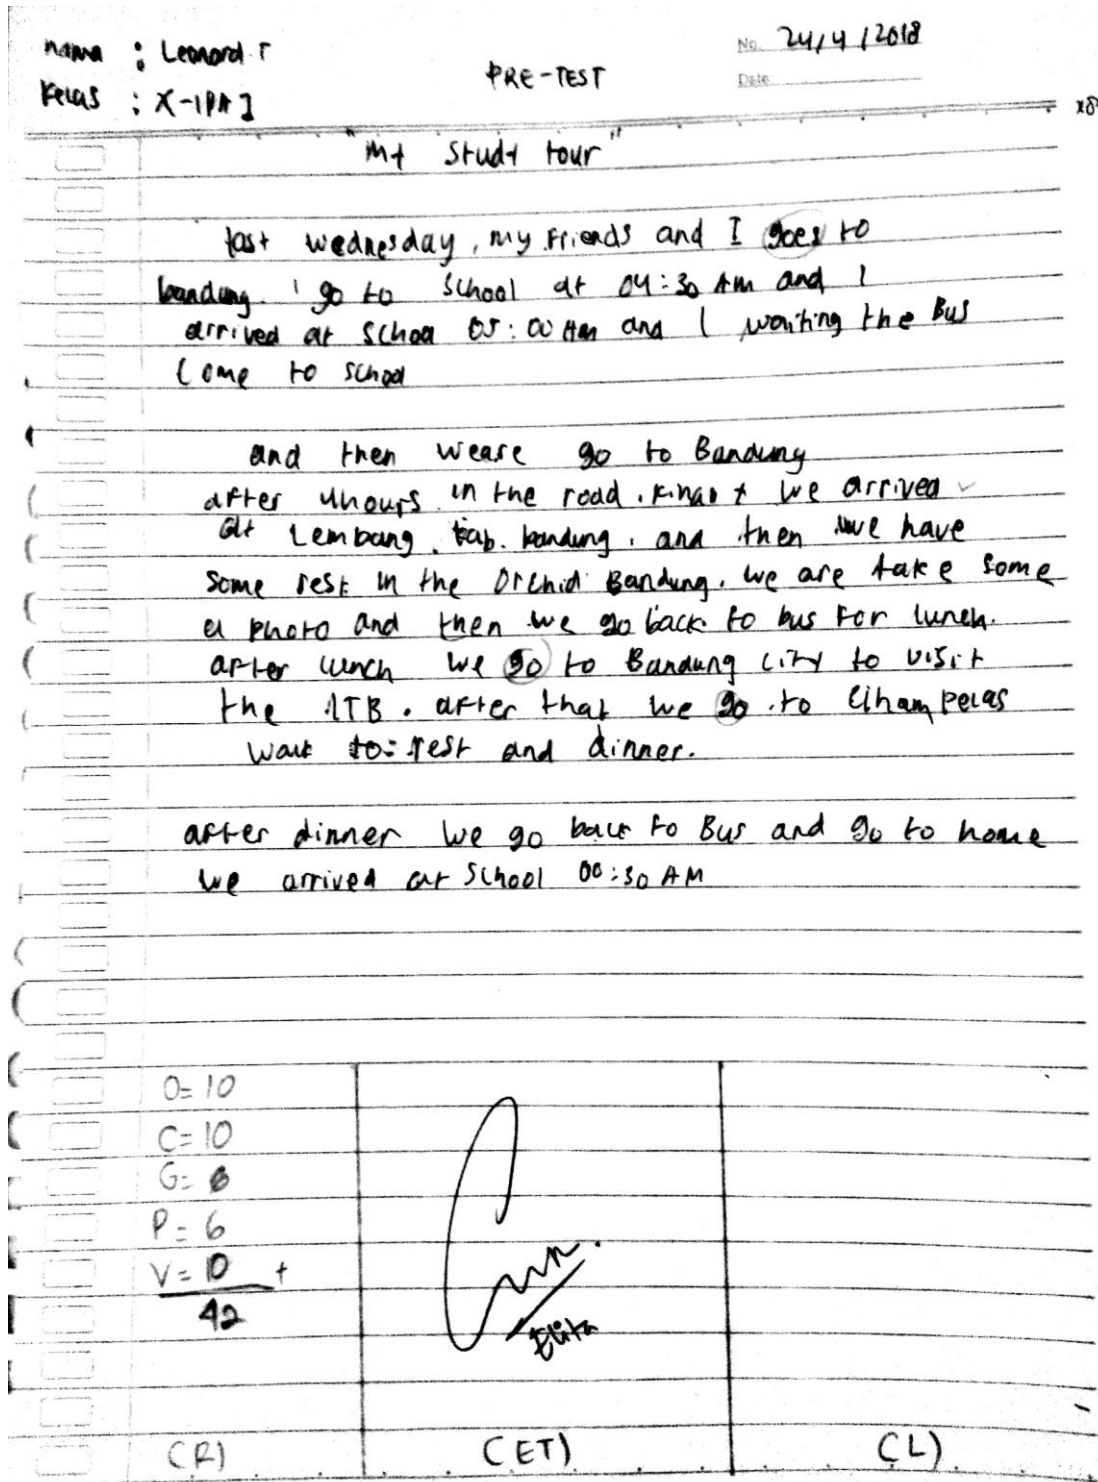 nama : Leonard. T
No. 24/4/2018
PRE-TEST
Date
Kelas : X-IPA 1
"My Study tour"
last wednesday, my friends and I goes to
bandung. I go to school at 04:30 AM and I
arrived at school 05:00 AM and I waiting the Bus
Come to school
and then wease go to Bandung
after 4hours in the road. Finaly we arrived
at Lembang. kab. bandung. and then we have
some rest in the Orchid Bandung. we are take some
a photo and then we go back to bus for lunch.
after lunch we go to Bandung city to visit
the ITB. after that we go to Cihampelas
walk to rest and dinner.
after dinner we go back to Bus and go to home
we arrived at school 00:30 AM
O= 10
C= 10
G= 6
P= 6
V= 10 +
42
Elita
(R)
(ET)
(L)